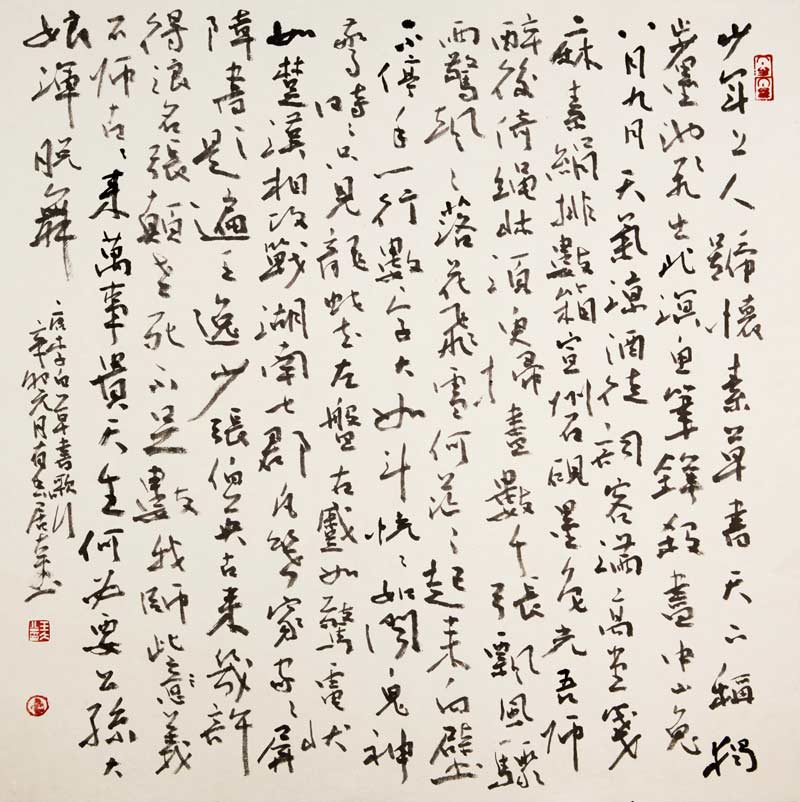 少年上人號懷素草書天下稱獨
步墨池飛出北溟魚筆鋒殺盡中山兔
八月九月天氣涼酒徒詞客滿高堂箋
麻素絹排數箱宣州石硯墨色光吾師
醉後倚繩床須臾掃盡數千張飄風驟
雨驚颯々落花飛雪何茫々起來向壁
不停手一行數字大如斗怳々如聞鬼神
驚時々只見龍蛇走左盤右蹙如驚電狀
如楚漢相攻戰湖南七郡凡幾家家々屏
障書題遍王逸少張伯英古來幾許
得浪名張顛老死不足數我師此義
不師古々來萬事貴天生何必要公孫大
娘渾脫舞
李白草書歌行
辛卯元月居士書